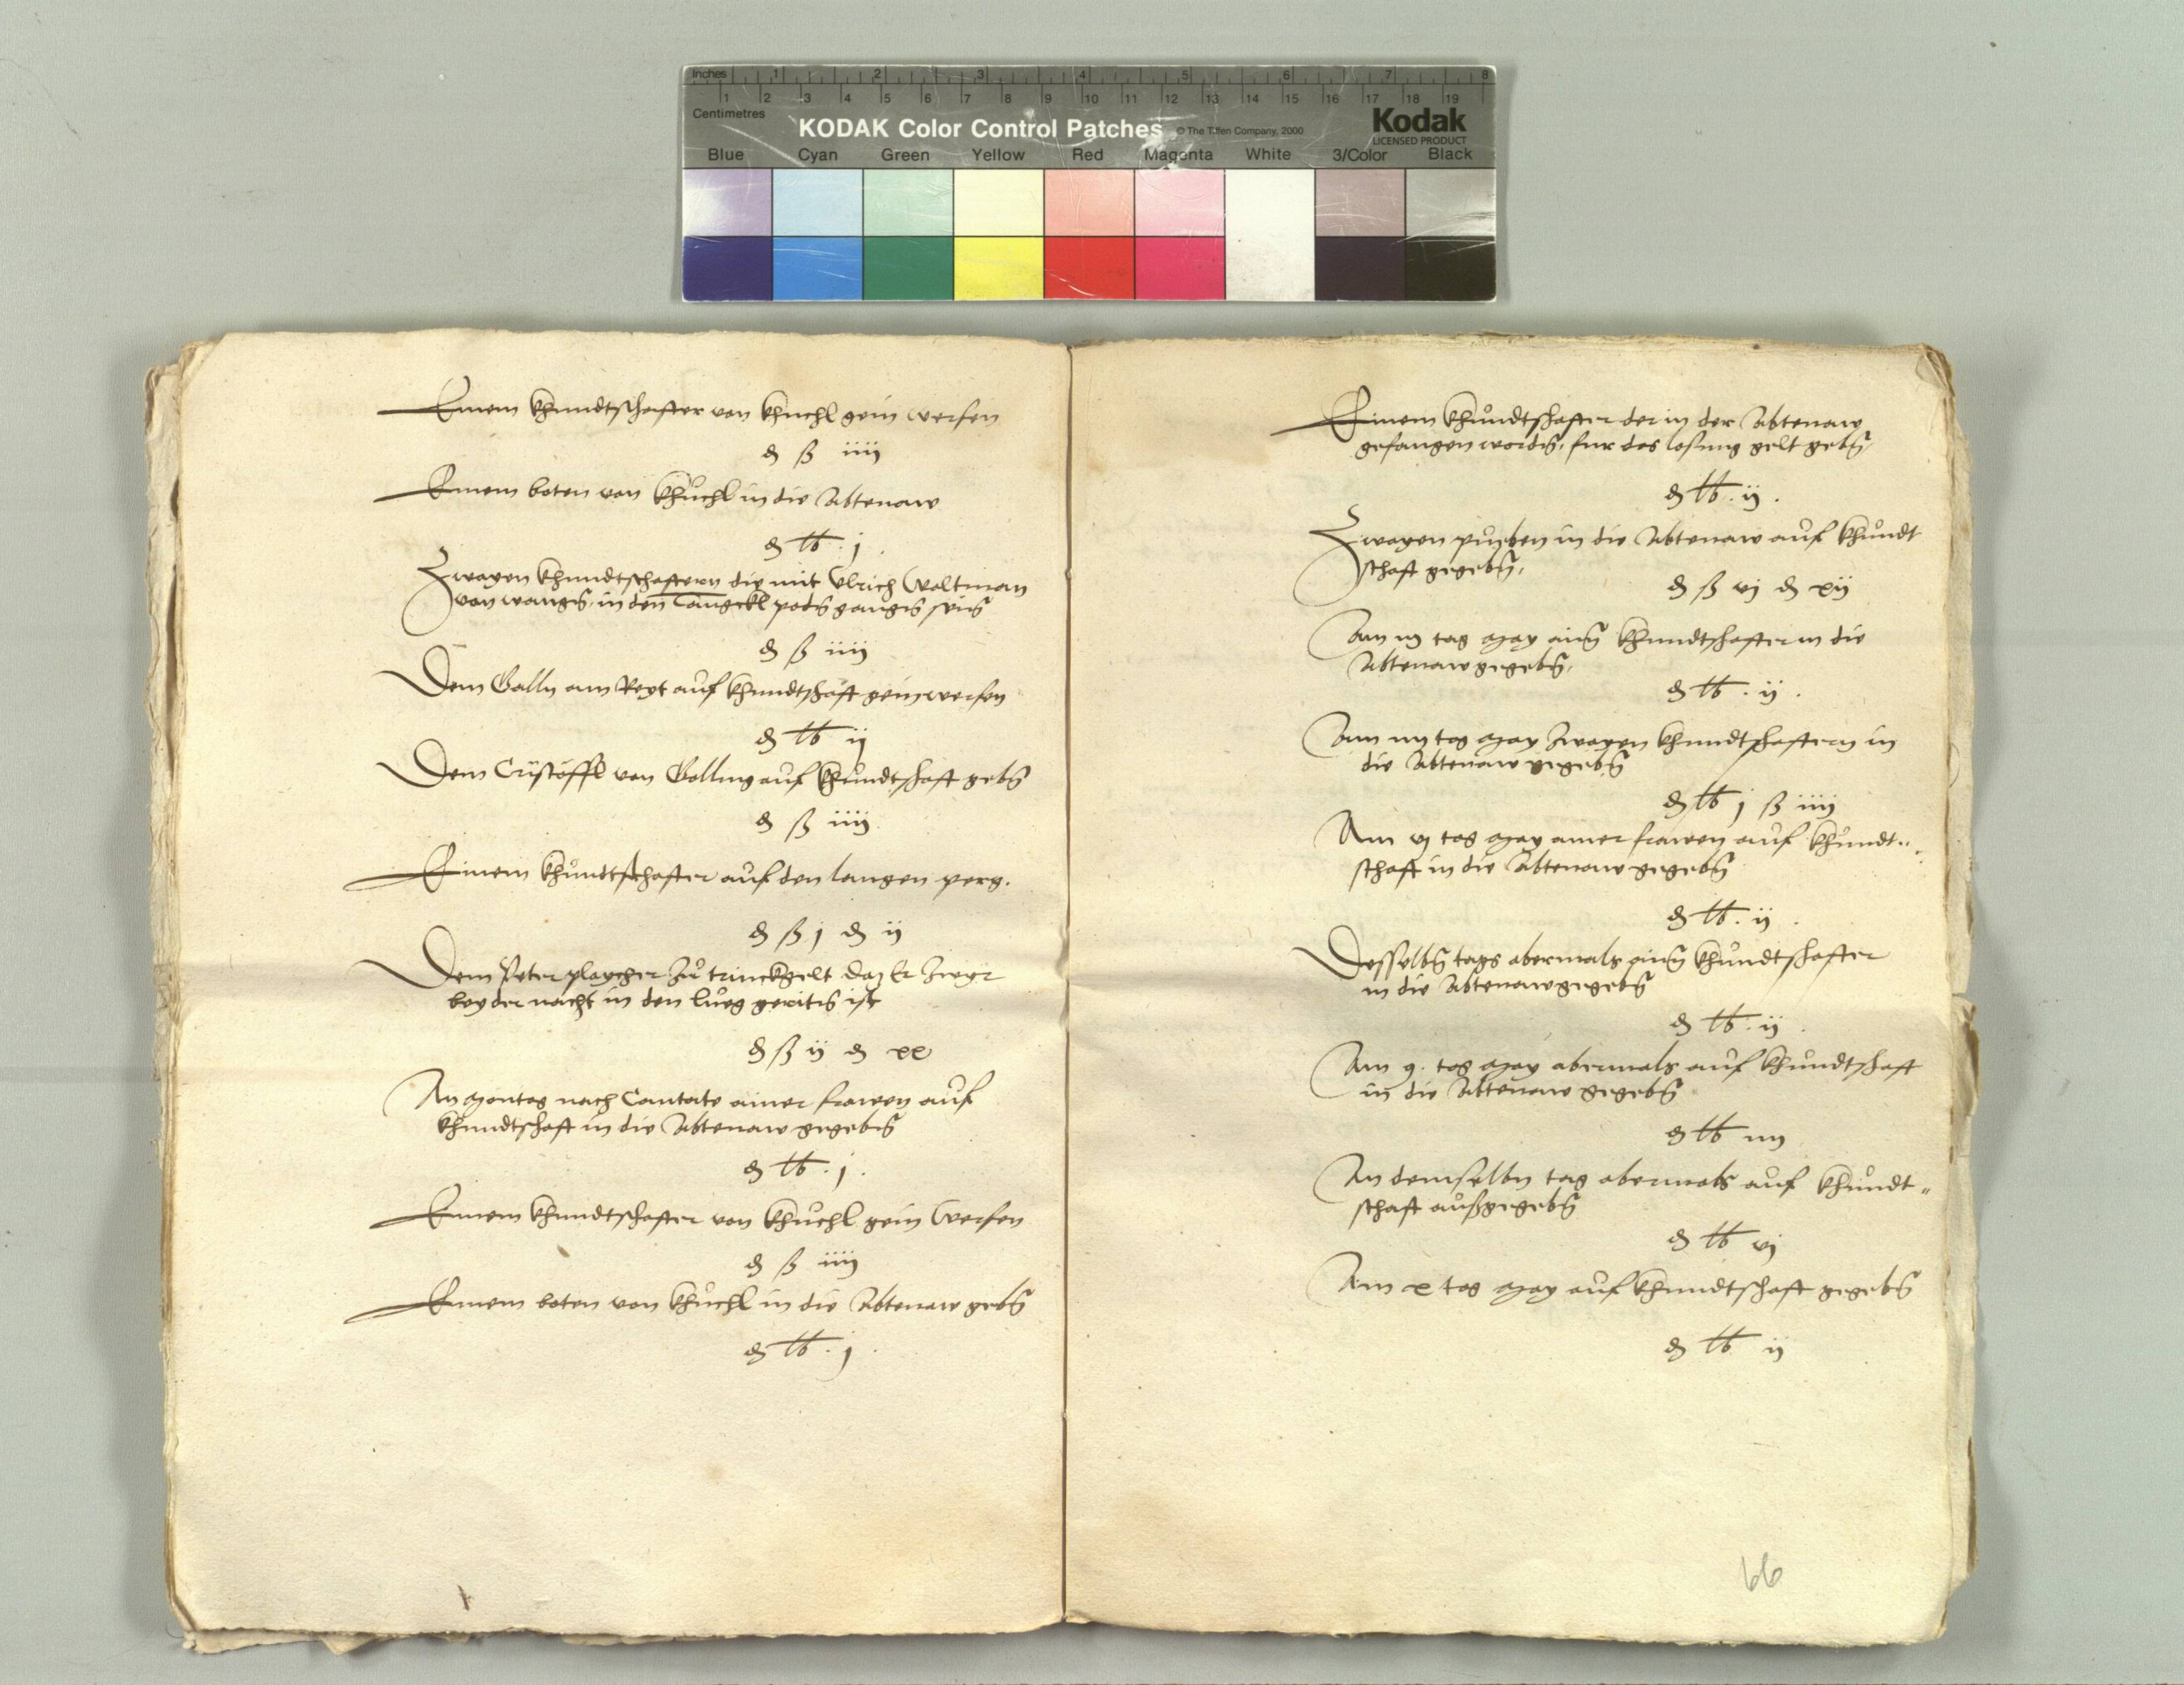 Inches 1 2 3 4 5 6 7 8
1 2 3 4 5 6 7 8 9 10 11 12 13 14 15 16 17 18 19
Centimetres
KODAK Color Control Patches © The Tiffen Company, 2000
Kodak
LICENSED PRODUCT
Blue Cyan Green Yellow Red Magenta White 3/Color Black
Einem khundtschafter von khuchl gein werfen
₰ ß iiij
Einem boten von khuchl in die Abtenaw
₰ lb . j .
Zwayen khundtschaftern die mit Ulrich Waltman
von in den
₰ ß iiij
Dem Galln am Reyt auf khundtschaft gein werfen
₰ lb ij
Dem Cristoffl von Golling auf khundtschaft gebn
₰ ß iiij
Einem khundtschafter auf den langen perg.
₰ ß j ₰ ij
Dem Peter playcher zu trinckgelt daz Er zwyr
bey der nacht in den lueg geritn ist
₰ ß ij ₰ xx
An Montag nach Cantate ainer frawen auf
khundtschaft in die Abtenaw gegebn
₰ lb . j .
Einem khundtschafter von khuchl gein Werfen
₰ ß iiij
Einem boten von khuchl in die Abtenaw gebn
₰ lb . j .
Einem khundtschafter der in der Abtenaw
gefangen wordn, fur das losung gelt gebn
₰ lb . ij .
Zwayen pueben in die Abtenaw auf khundt
schaft gegebn,
₰ ß vj ₰ xij
Am iij tag May ainem khundtschafter in die
Abtenaw gegebn,
₰ lb . ij .
Am iiij tag May zwayen khundtschaftern in
die Abtenaw gegebn
₰ lb j ß iiij
Am vj tag May ainer frawen auf khundt„
schaft in die Abtenaw gegebn
₰ lb . ij .
Desselbn tags abermals ainem khundtschafter
in die Abtenaw gegebn
₰ lb . ij .
Am 9. tag May abermals auf khundtschaft
in die Abtenaw gegebn
₰ lb iiij
An demselbn tag abermals auf khundt„
schaft außgegebn
₰ lb vj
Am x tag May auf khundtschaft gegebn
₰ lb ij
66